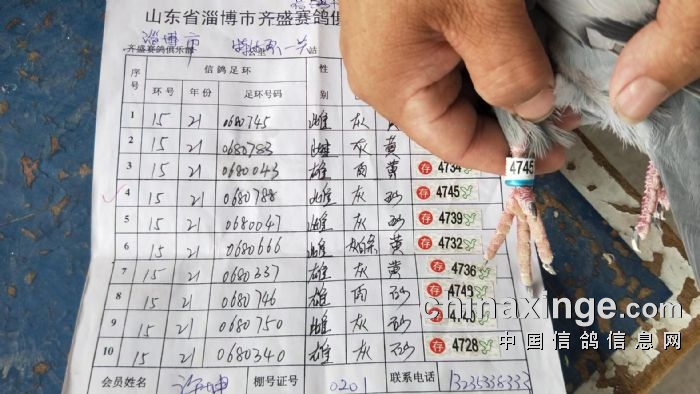 山东省淄博市齐盛赛鸽俱
淄博市 一关
齐盛赛鸽俱乐部 站
序号 信鸽足环 性别
环号 年份 足环号码
1 15 21 0680745 雌 灰
2 15 21 0680782 雌 灰 黄
3 15 21 0680043 雄 雨 黄 存 4734
4 15 21 0680788 雌 灰 砂 存 4745
5 15 21 0680047 雌 灰 砂 存 4739
6 15 21 0680666 雌 黄 存 4732
7 15 21 0680337 雄 灰 黄 存 4736
8 15 21 0680746 雄 雨 砂 存
9 15 21 0680750 雌 灰 砂 存
10 15 21 0680340 雄 灰 砂 存 4728
会员姓名 棚号证号 0201 联系电话
4745
chinaxinge.com
中国信鸽信息网